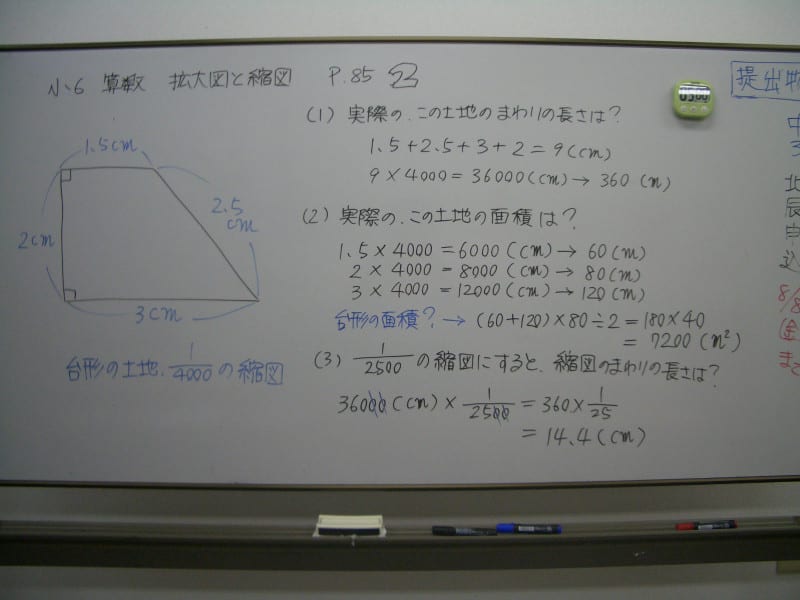 小6 算数 拡大図と縮図 P.85 2
1.5cm
2.5
cm
2cm
3cm
台形の土地.1/4000の縮図
(1) 実際の.この土地のまわりの長さは?
1.5+2.5+3+2=9(cm)
9×4000=36000(cm)→360(m)
(2) 実際の.この土地の面積は?
1.5×4000=6000(cm)→60(m)
2×4000=8000(cm)→80(m)
3×4000=12000(cm)→120(m)
台形の面積?→(60+120)×80÷2=180×40
=7200(m²)
(3) 1/2500の縮図にすると、縮図のまわりの長さは?
36000(cm)×1/2500=360×1/25
=14.4(cm)
提出物
中
北
辰
申
込
8/8
(金
まで